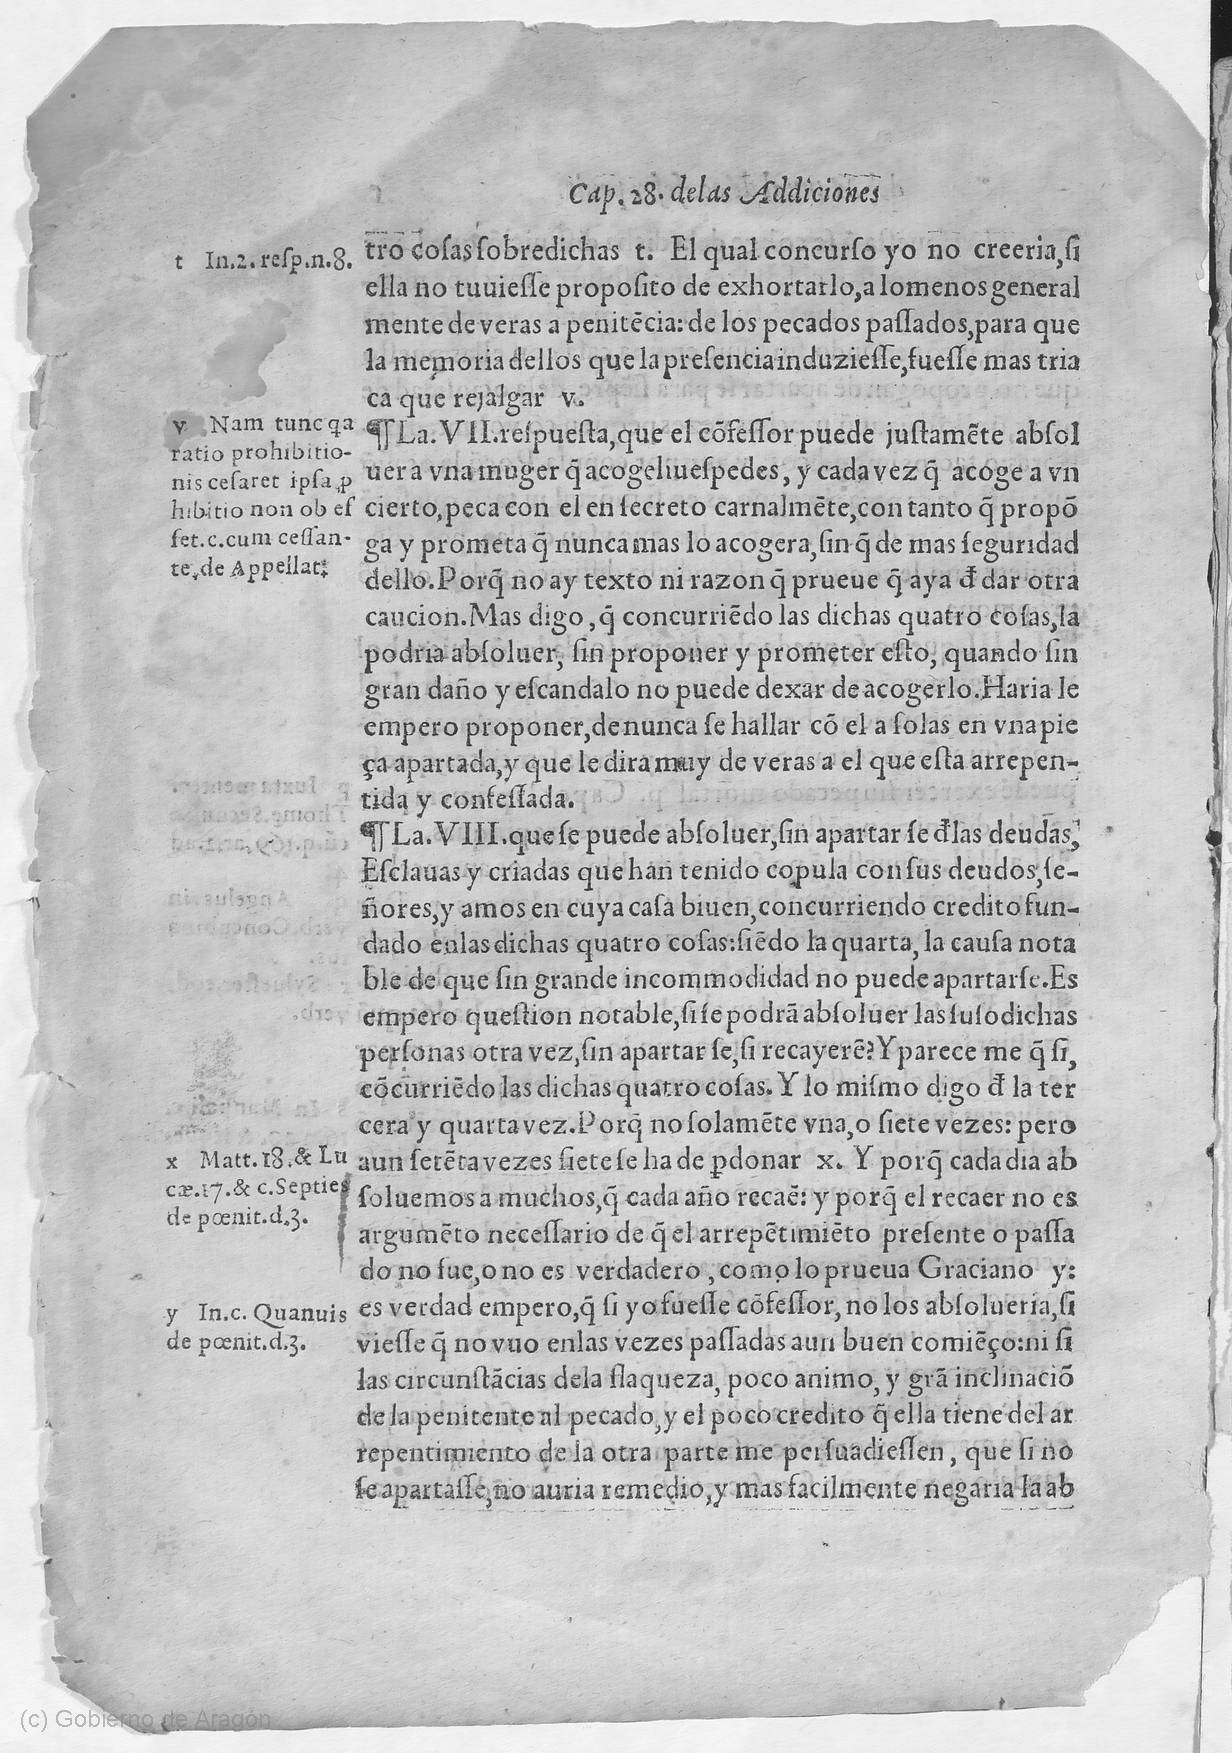 Cap. 28. delas Addiciones
t In.2.resp.n.8.
tro cosas sobredichas t. El qual concurso yo no creeria, si
ella no tuuiesse proposito de exhortarlo, a lo menos general
mente de veras a penitẽcia: de los pecados passados, para que
la memoria dellos que la presencia induziesse, fuesse mas tria
ca que rejalgar v.
v Nam tunc qa
ratio prohibitio-
nis cesaret ipsa ꝓ
hibitio non ob es
set.c.cum cessan-
te, de Appellat:
¶ La. VII. respuesta, que el cõfessor puede justamẽte absol
uer a vna muger q̃ acoge huespedes, y cada vez q̃ acoge a vn
cierto, peca con el en secreto carnalmẽte, con tanto q̃ propõ
ga y prometa q̃ nunca mas lo acogera, sin q̃ de mas seguridad
dello. Porq̃ no ay texto ni razon q̃ prueue q̃ aya đ dar otra
caucion. Mas digo, q̃ concurriẽdo las dichas quatro cosas, la
podria absoluer, sin proponer y prometer esto, quando sin
gran daño y escandalo no puede dexar de acogerlo. Haria le
empero proponer, de nunca se hallar cõ el a solas en vna pie
ça apartada, y que le dira muy de veras a el que esta arrepen-
tida y confessada.
¶ La. VIII. que se puede absoluer, sin apartar se đlas deudas,
Esclauas y criadas que han tenido copula con sus deudos, se-
ñores, y amos en cuya casa biuen, concurriendo credito fun-
dado enlas dichas quatro cosas: siẽdo la quarta, la causa nota
ble de que sin grande incommodidad no puede apartarse. Es
empero question notable, si se podrã absoluer las susodichas
personas otra vez, sin apartar se, si recayerẽ? Y parece me q̃ si,
cõcurriẽdo las dichas quatro cosas. Y lo mismo digo đ la ter
cera y quarta vez. Porq̃ no solamẽte vna, o siete vezes: pero
aun setẽta vezes siete se ha de ꝑdonar x. Y porq̃ cada dia ab
soluemos a muchos, q̃ cada año recaẽ: y porq̃ el recaer no es
argumẽto necessario de q̃ el arrepẽtimiẽto presente o passa
do no fue, o no es verdadero, como lo prueua Graciano y:
x Matt.18.& Lu
cæ.17.& c.Septies
de pœnit.d.3.
y In.c. Quanuis
de pœnit.d.3.
es verdad empero, q̃ si yo fuesse cõfessor, no los absolueria, si
viesse q̃ no vuo enlas vezes passadas aun buen comiẽço: ni si
las circunstãcias dela flaqueza, poco animo, y grã inclinaciõ
de la penitente al pecado, y el poco credito q̃ ella tiene del ar
repentimiento de la otra parte me persuadiessen, que si no
se apartasse, no auria remedio, y mas facilmente negaria la ab
(c) Gobierno de Aragón